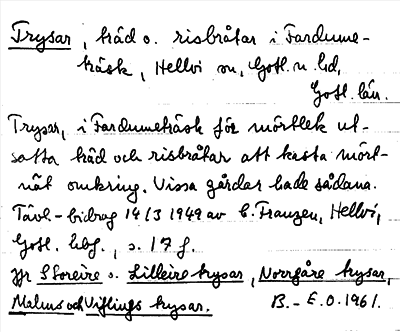 Trysar, träd o. risbråtar i Fardume-
träsk, Hellvi sn, Gotl. n. hd,
Gotl. län.
Trysar, i Fardumeträsk för mörtlek ut-
satta träd och risbråtar att kasta mört-
nät omkring. Vissa gårdar hade sådana.
Tävl-bidrag 14/3 1949 av C. Franzen, Hellvi,
Gotl. hbg., s. 17 f.
Jfr Storeire o. Lilleire trysar, Norrgåre trysar,
Malms och Viflings trysar. B.-E.O. 1961.